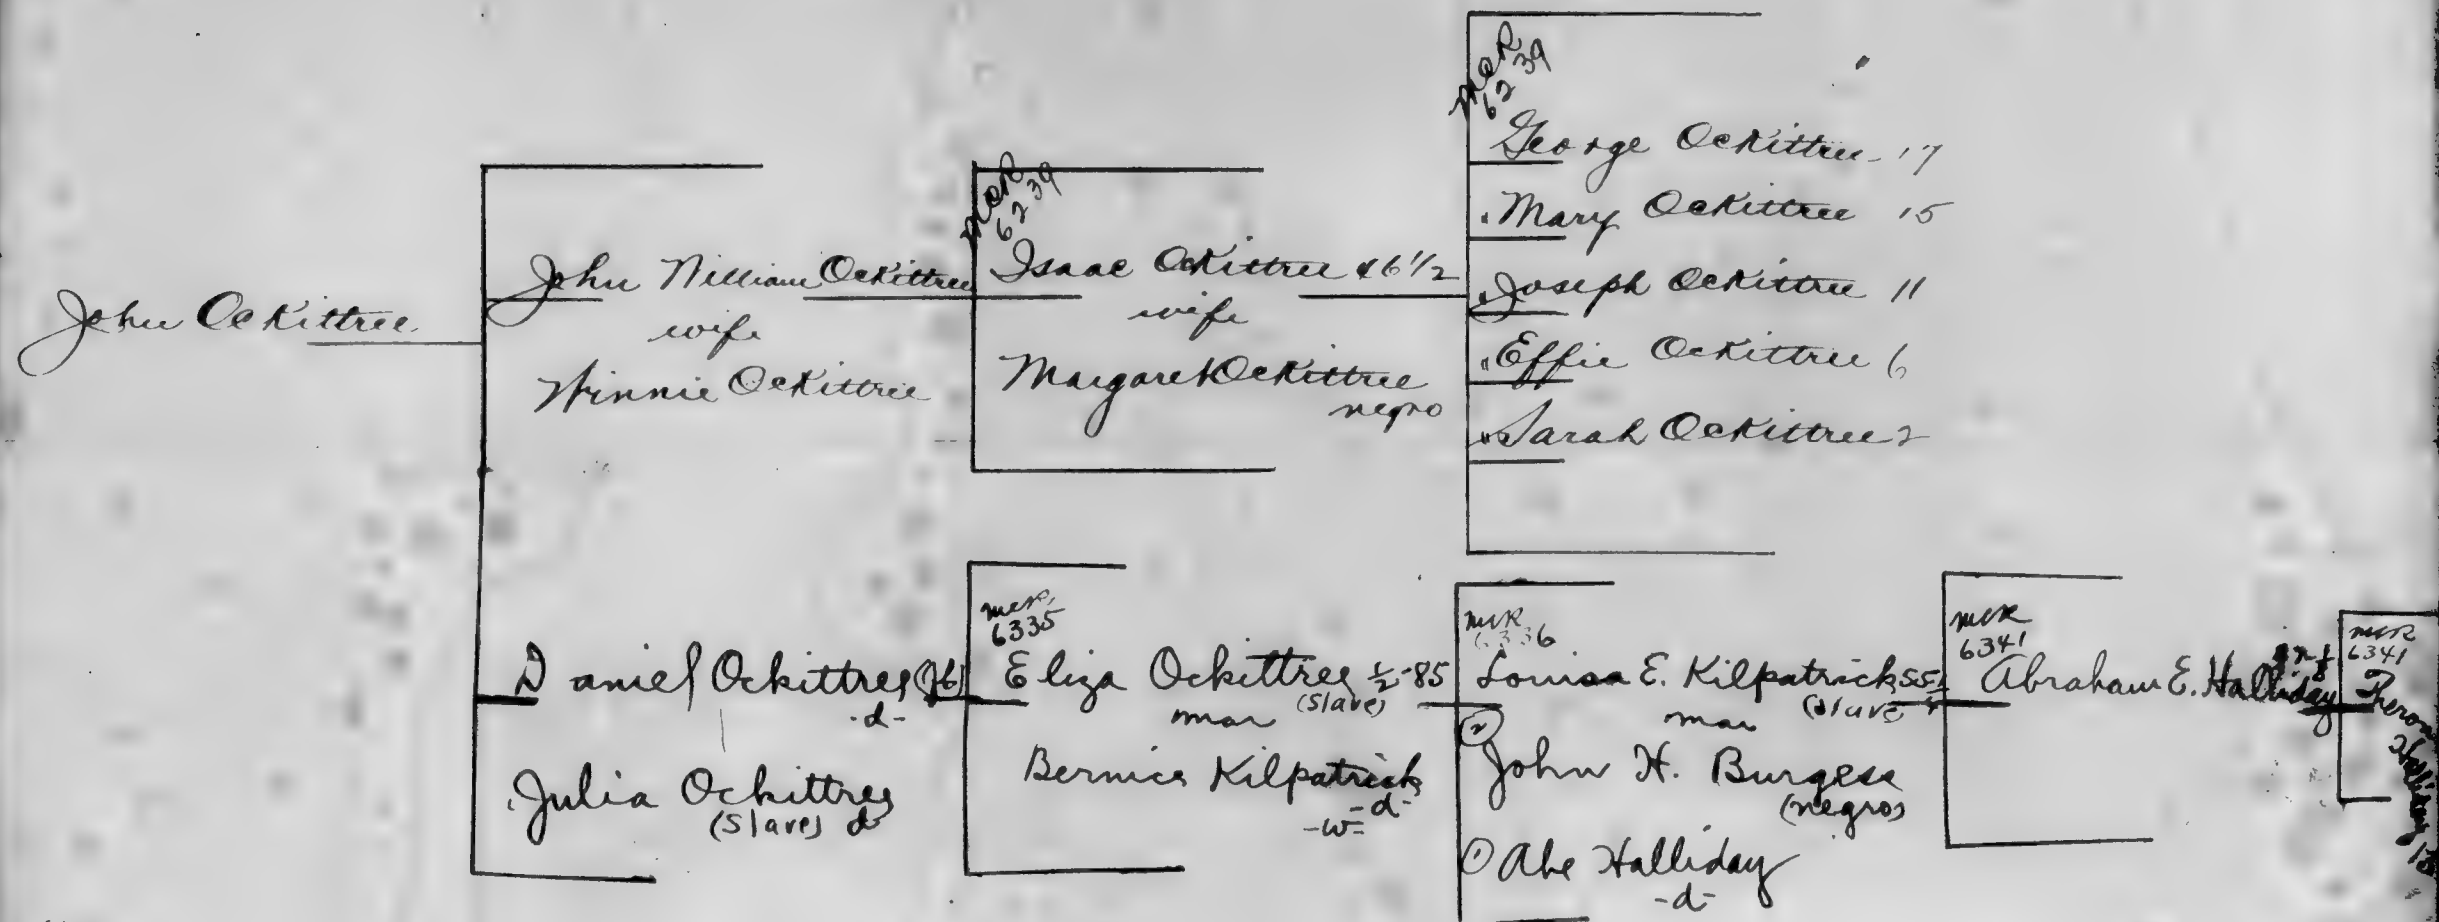 John Ockittree
John William Ockittree
wife
Winnie Ockittree
Daniel Ockittree
-d-
Julia Ockittree
(Slave) d
MCR
6239
Isaac Ockittree 46 1/2
wife
Margaret Ockittree
negro
MCR
6335
Eliza Ockittree 1/2-85
(Slave)
mar
Bernice Kilpatrick
-d-
-w-
MCR
6239
George Ockittree 17
Mary Ockittree 15
Joseph Ockittree 11
Effie Ockittree 6
Sarah Ockittree 2
MCR
6336
Louisa E. Kilpatrick 55
(Slave)
mar
(2)
John H. Burgess
(negro)
(1) Abe Halliday
-d-
MCR
6341
Abraham E. Halliday
MCR
6341
Theron
Halliday